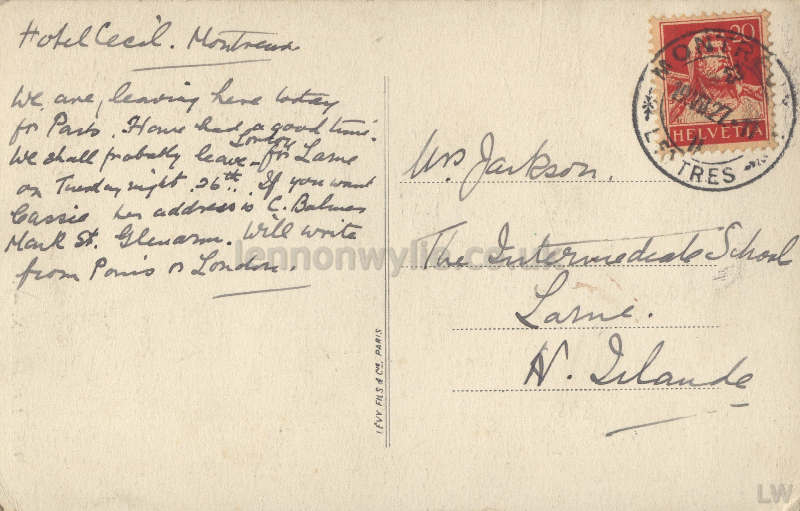 Hotel Cecil. Montreux
We are leaving here today
for Paris. Have had a good time.
We shall probably leave London for Larne
on Tuesday night. 26th. If you want
Cassie her address is C. Balmer
Mark St. Glenarm. Will write
from Paris or London.
Mrs Jackson.
The Intermediate School
Larne.
N. Irlande
LÉVY FILS & Cie, PARIS
20
HELVETIA
MONTREUX
VII.27
LETTRES
lennonwylie.co.uk
LW